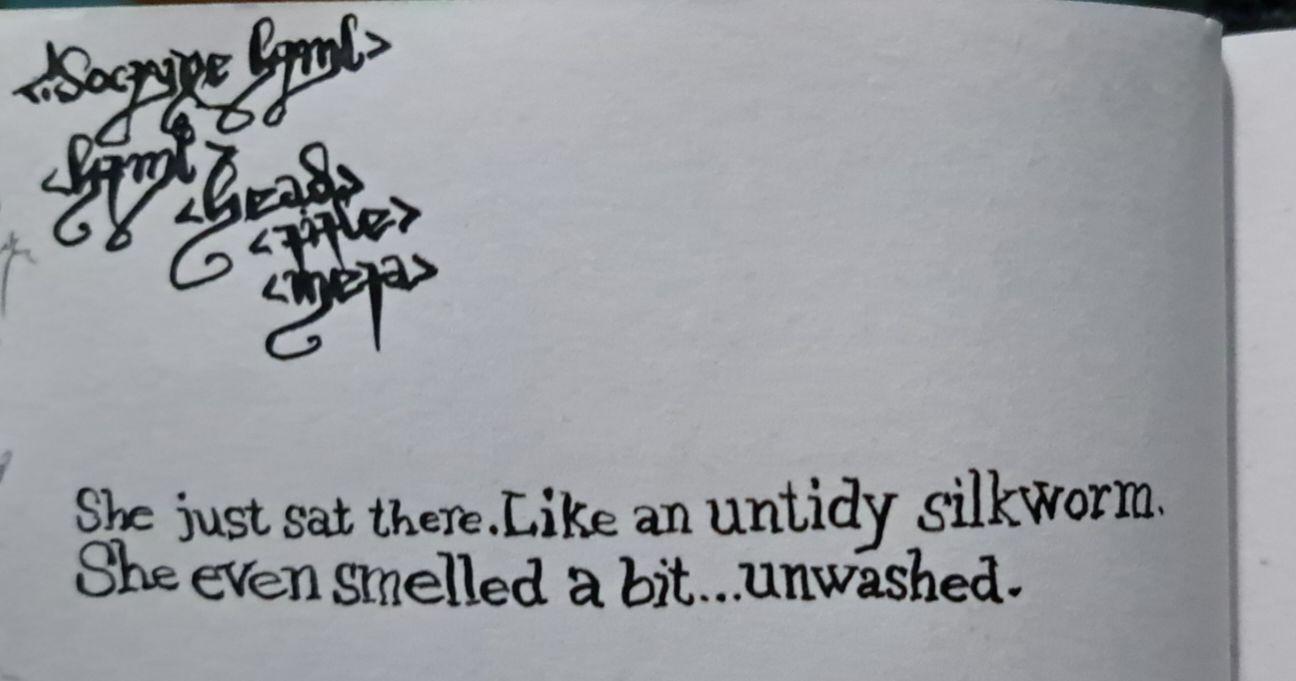 <!Doctype html>
<html>
<head>
<title>
<meta>
She just sat there. Like an untidy silkworm.
She even smelled a bit...unwashed.